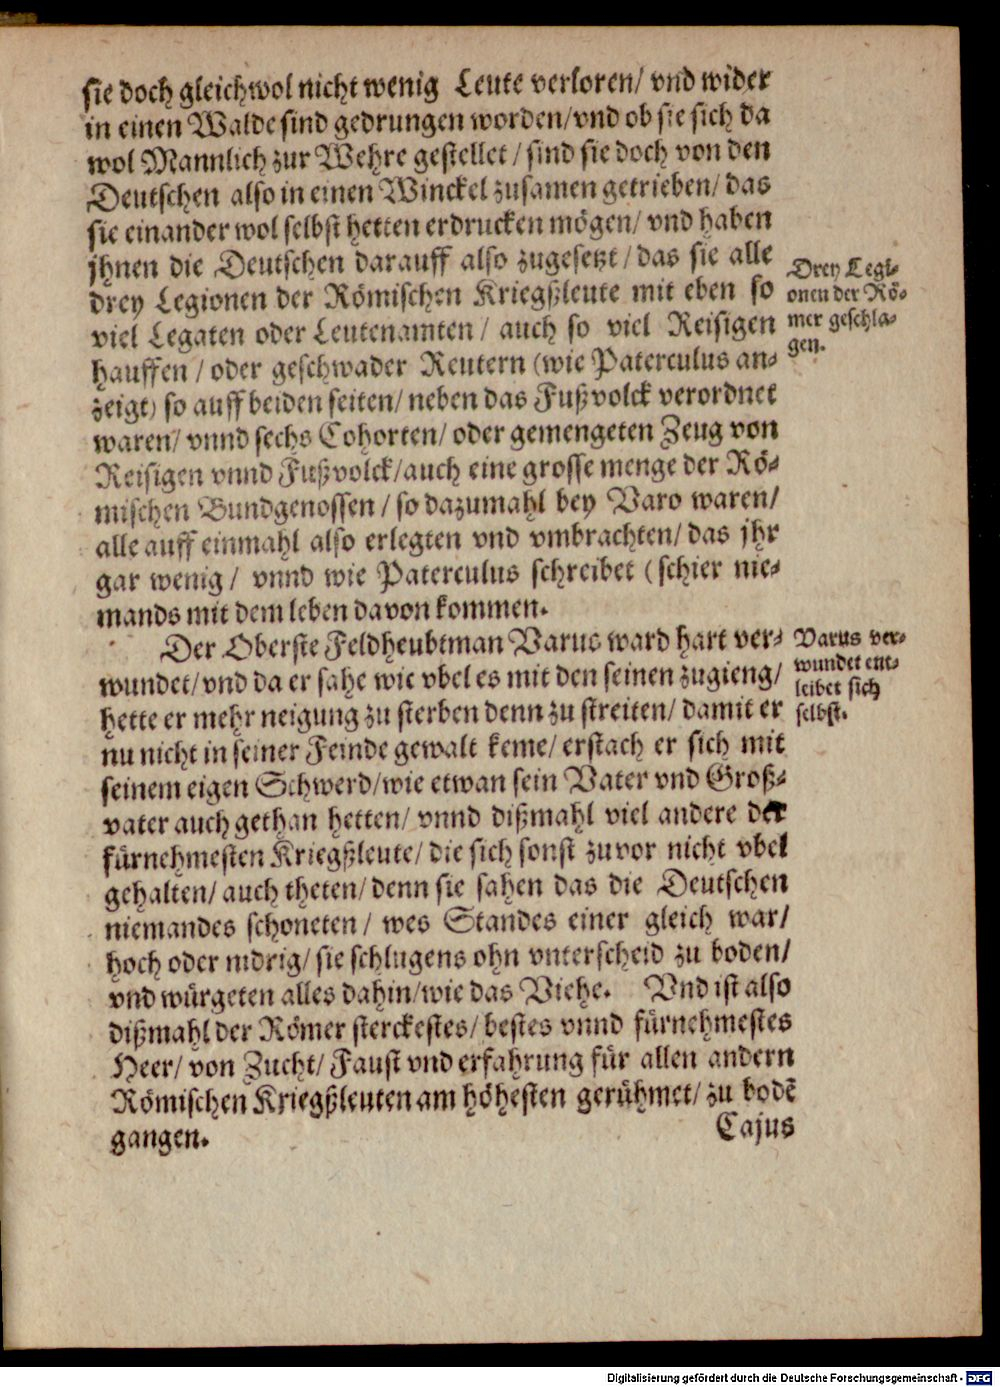 sie doch gleichwol nicht wenig Leute verloren/ vnd wider
in einen Walde sind gedrungen worden/ vnd ob sie sich da
wol Mannlich zur Wehre gestellet / sind sie doch von den
Deutschen also in einen Winckel zusamen getrieben/ das
sie einander wol selbst hetten erdrucken mögen/ vnd haben
jhnen die Deutschen darauff also zugesetzt / das sie alle
drey Legionen der Römischen Kriegßleute mit eben so
viel Legaten oder Leutenamten / auch so viel Reisigen
hauffen / oder geschwader Reutern (wie Paterculus an-
zeigt) so auff beiden seiten/ neben das Fußvolck verordnet
waren/ vnnd sechs Cohorten/ oder gemengeten Zeug von
Reisigen vnnd Fußvolck/ auch eine grosse menge der Rö-
mischen Bundgenossen / so dazumahl bey Varo waren/
alle auff einmahl also erlegten vnd vmbrachten/ das jhr
gar wenig / vnnd wie Paterculus schreibet (schier nie-
mands mit dem leben davon kommen.
Drey Legi-
onen der Rö-
mer geschla-
gen.
Der Oberste Feldheubtman Varus ward hart ver-
wundet/ vnd da er sahe wie vbel es mit den seinen zugieng/
hette er mehr neigung zu sterben denn zu streiten/ damit er
nu nicht in seiner Feinde gewalt keme/ erstach er sich mit
seinem eigen Schwerd/ wie etwan sein Vater vnd Groß-
vater auch gethan hetten/ vnnd dißmahl viel andere der
fürnehmesten Kriegßleute/ die sich sonst zuvor nicht vbel
gehalten/ auch theten/ denn sie sahen das die Deutschen
niemandes schoneten / wes Standes einer gleich war/
hoch oder nidrig/ sie schlugens ohn vnterscheid zu boden/
vnd würgeten alles dahin/ wie das Viehe. Vnd ist also
dißmahl der Römer sterckestes/ bestes vnnd fürnehmestes
Heer/ von Zucht/ Faust vnd erfahrung für allen andern
Römischen Kriegßleuten am höhesten gerühmet/ zu bodẽ
gangen.
Varus ver-
wundet ent-
leibet sich
selbst.
Cajus
Digitalisierung gefördert durch die Deutsche Forschungsgemeinschaft - DFG